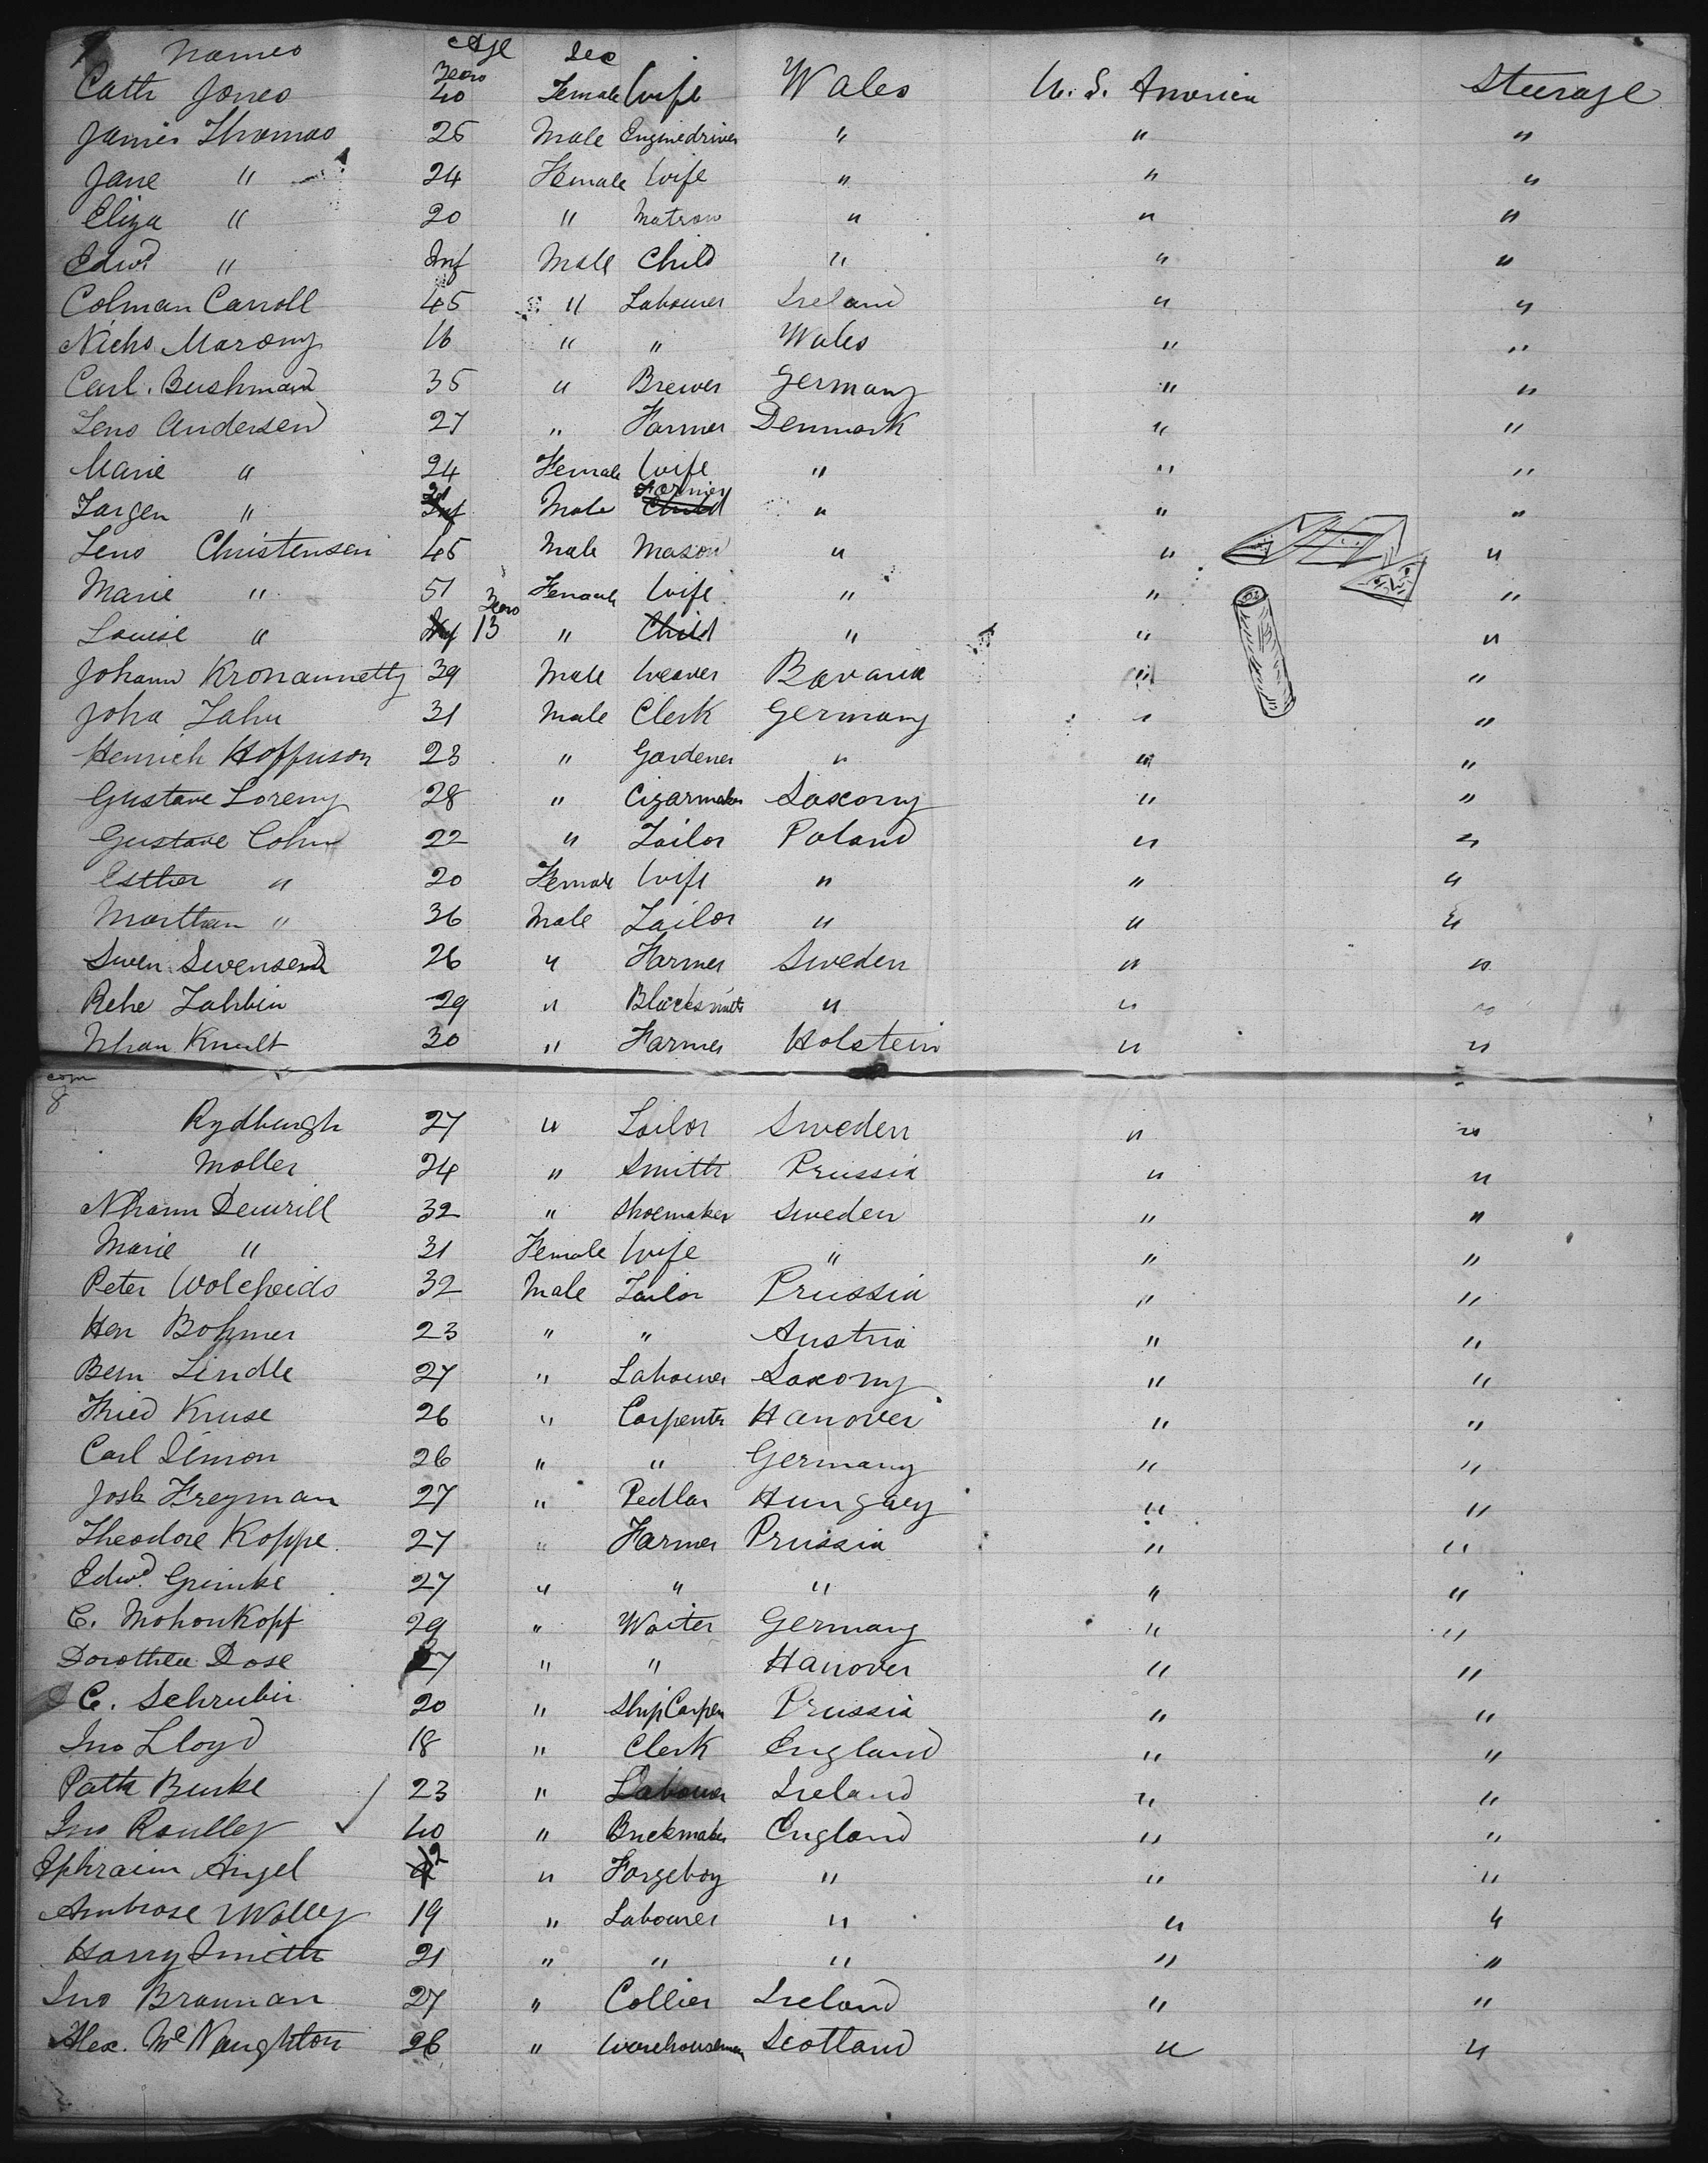 Names Age Sec
Cath Jones 40 Years Female Wife Wales U. S. America Steerage
James Thomas 25 Male Enginedriver " " "
Jane " 24 Female Wife " " "
Eliza " 20 " Matron " " "
Edwd " Inf Male Child " " "
Colman Carroll 45 " Labourer Ireland " "
Nichs Marony 16 " " Wales " "
Carl. Bushman 35 " Brewer Germany " "
Jens Andersen 27 " Farmer Denmark " "
Marie " 24 Female Wife " " "
Jargen " 21 Male Farmer " " "
Jens Christensen 45 Male Mason " " "
Marie " 51 Female Wife " " "
Louise " 13 Years " Child " " "
Johann Kronannetty 39 Male Weaver Bavaria " "
John Jahn 31 Male Clerk Germany " "
Henrich Hoffnson 23 " Gardener " " "
Gustave Loreny 28 " Cigarmaker Saxony " "
Gustave Cohn 22 " Tailor Poland " "
Esther " 20 Female Wife " " "
Marthan " 36 Male Tailor " " "
Swen Swensen 26 " Farmer Sweden " "
Rehe Jahbin 29 " Blacksmith " " "
Knult 30 " Farmer Holstein " "
8
Rydburgh 27 " Tailor Sweden " "
Moller 24 " Smith Prussia " "
Nhann Dewrill 32 " Shoemaker Sweden " "
Marie " 31 Female Wife " " "
Peter Wolcheids 32 Male Tailor Prussia " "
Hen Bohmer 23 " " Austria " "
Bern Lindle 27 " Labourer Saxony " "
Fried Kruse 26 " Carpenter Hanover " "
Carl Simon 26 " " Germany " "
Josh Freyman 27 " Pedlar Hungary " "
Theodore Koppe. 27 " Farmer Prussia " "
Edwd. Grimke 27 " " " " "
C. Mohonkopf 29 " Waiter Germany " "
Dorothea Dose 27 " " Hanover " "
C. Schrubir 20 " Ship Carpen Prussia " "
Jno Lloyd 18 " Clerk England " "
Patk Burke 23 " Labourer Ireland " "
Jno Roulley 40 " Brickmaker England " "
Ephraim Angel 12 " Forgeboy " " "
Ambrose Wolley 19 " Labourer " " "
Harry Smith 21 " " " " "
Jno Brannan 27 " Collier Ireland " "
Alex. McNaughton 26 " Warehouseman Scotland " "